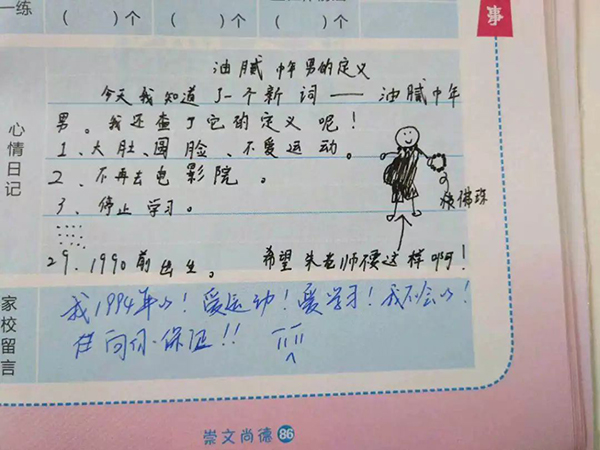 一练
( )个 ( )个 ( )个
事
心情日记
油腻中年男的定义
今天我知道了一个新词——油腻中年
男。我还查了它的定义呢！
1、大肚、圆脸、不爱运动。
2、不再去电影院。
3、停止学习。
29、1990前出生。 希望朱老师不要这样啊！
佛珠
家校留言
我1994年的！爱运动！爱学习！我不会的！
向你保证!!
崇文尚德 86